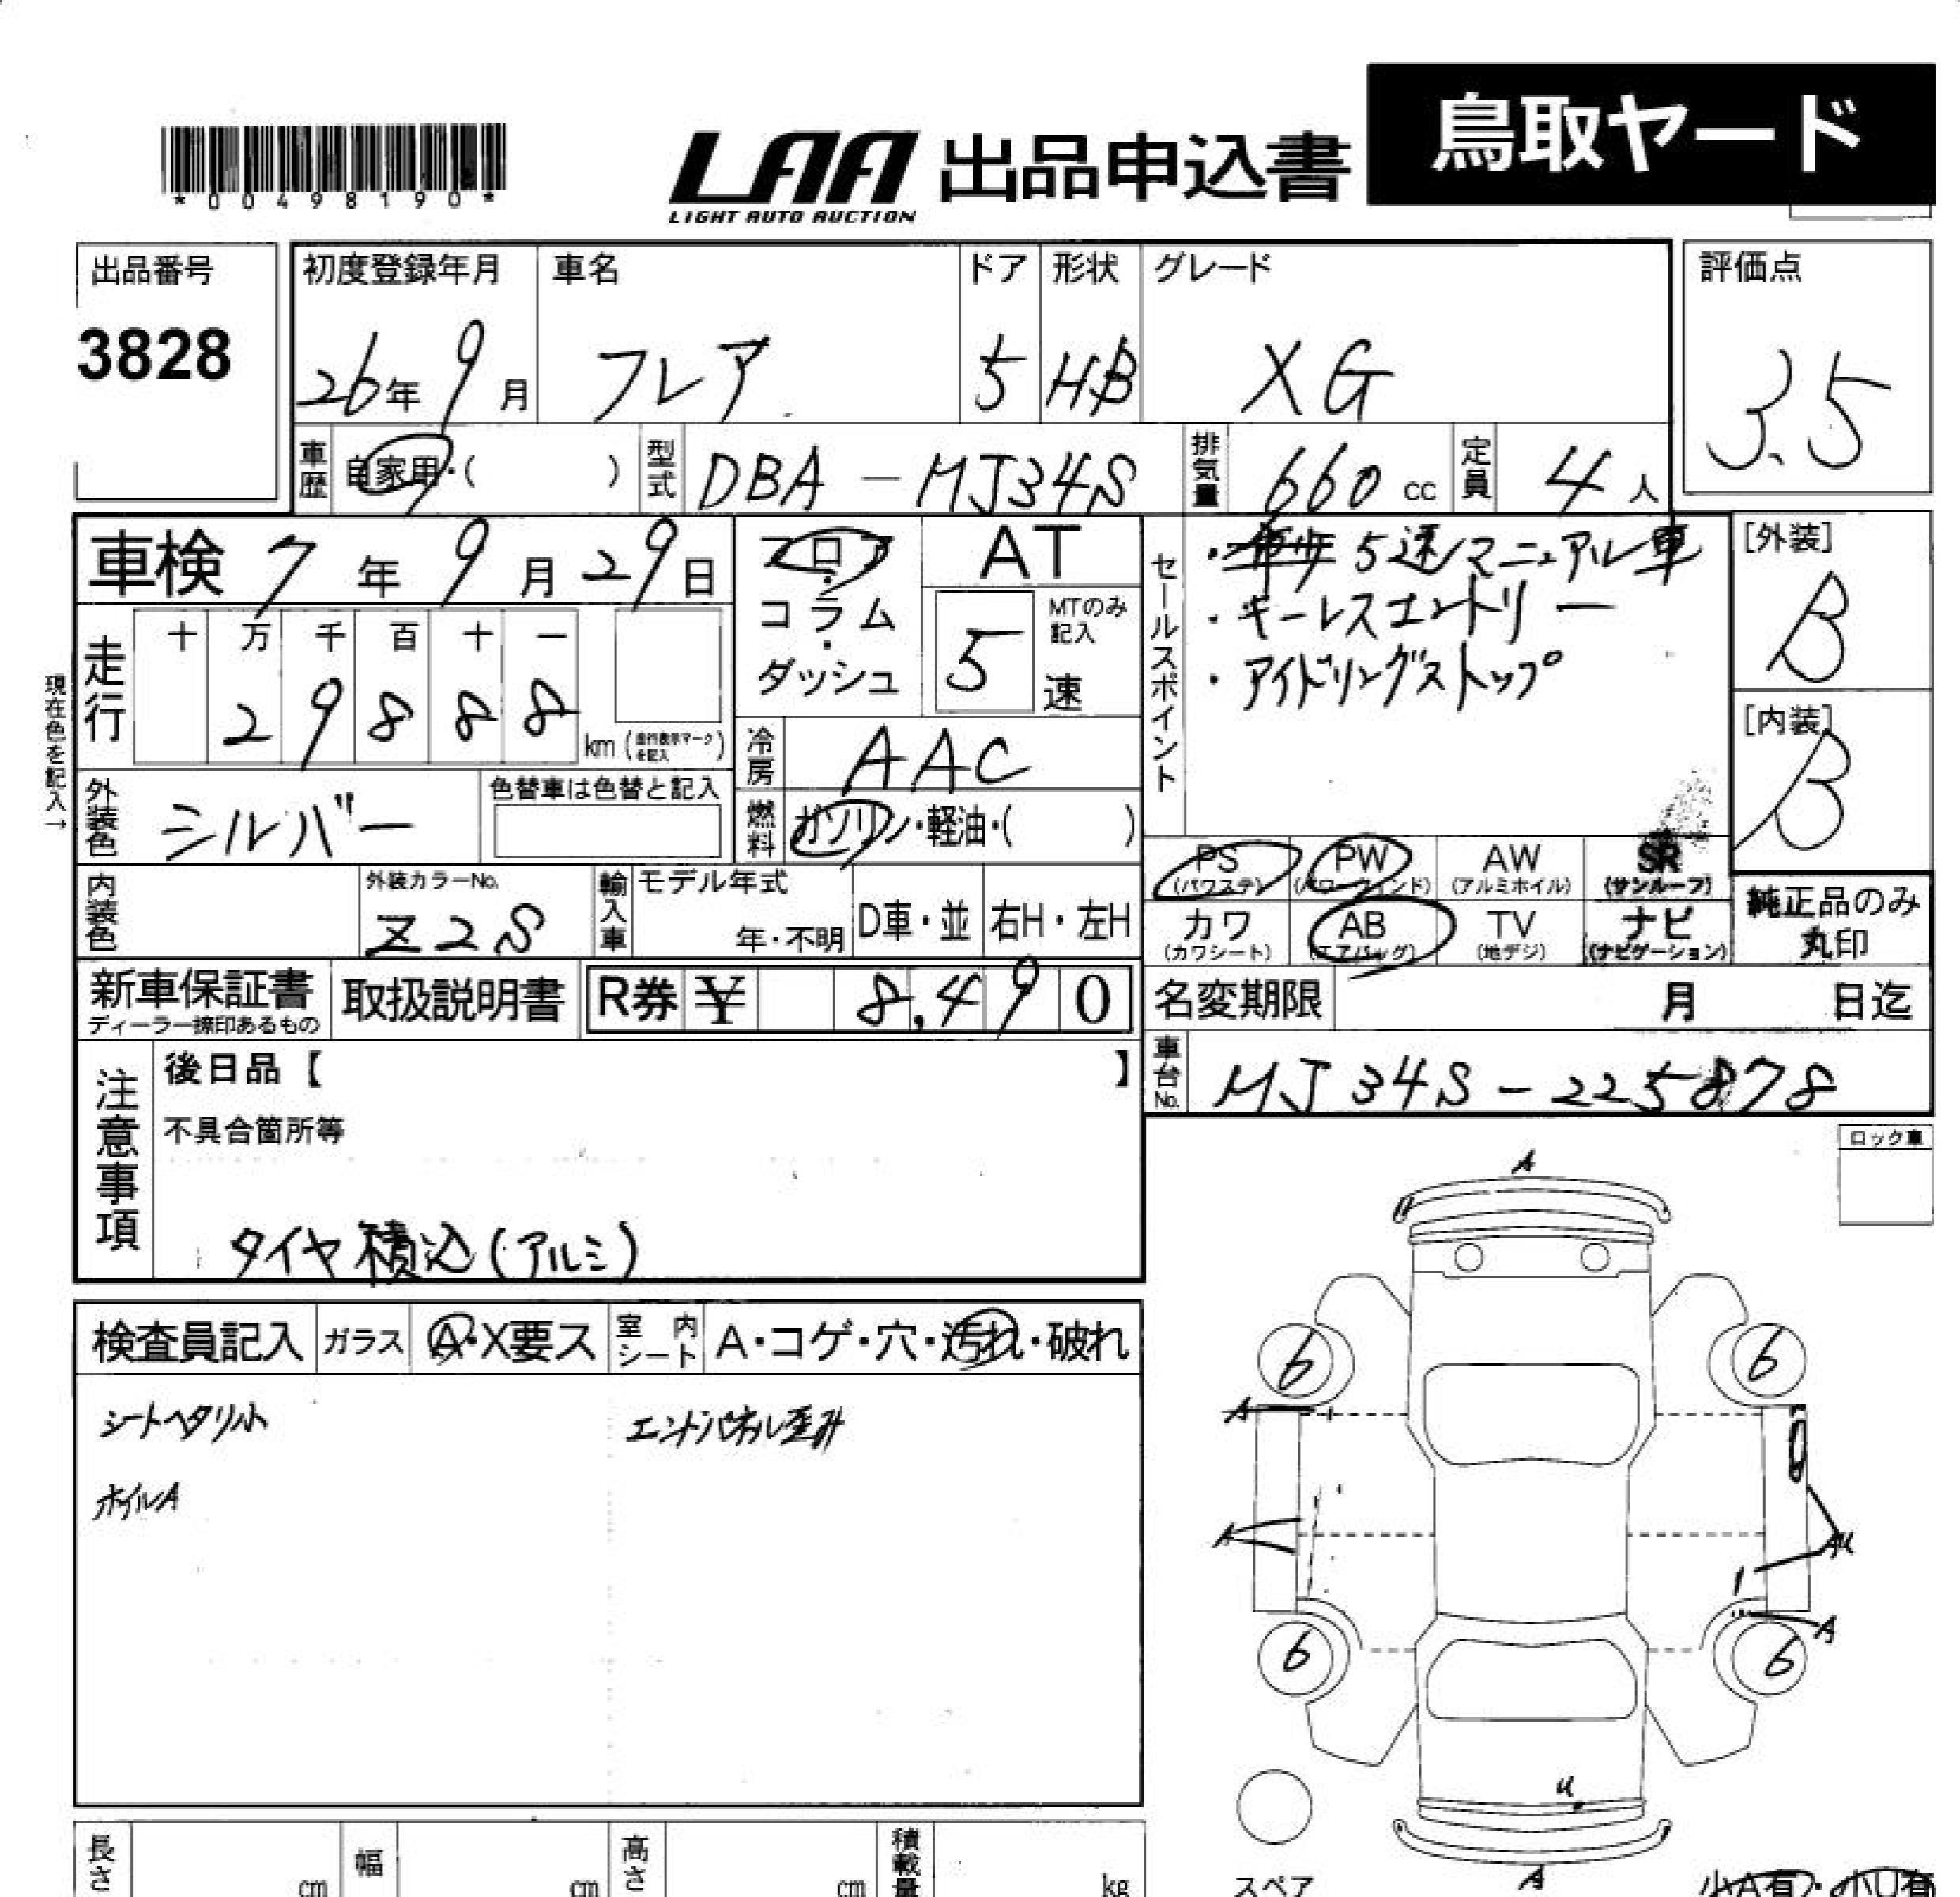 *00498190*
LAA 出品申込書
LIGHT AUTO AUCTION
鳥取ヤード
出品番号
3828
初度登録年月
26年 9月
車名
フレア
ドア
5
形状
HB
グレード
XG
評価点
3.5
車歴
自家用・( )
型式
DBA-MJ34S
排気量
660 cc
定員
4 人
車検 7年 9月 29日
フロア・コラム・ダッシュ
AT
5 速
MTのみ記入
セールスポイント
・5速マニュアル車
・キーレスエントリー
・アイドリングストップ
[外装]
B
[内装]
B
現在色を記入→
走行
十 万 千 百 十 一
2 9 8 8 8
km (走行表示マークを記入)
冷房
AAC
燃料
ガソリン・軽油・( )
外装色
シルバー
色替車は色替と記入
内装色
外装カラーNo.
Z2S
輸入車
モデル年式
年・不明
D車・並
右H・左H
PS (パワステ)
PW (パワーウィンド)
AW (アルミホイル)
SR (サンルーフ)
カワ (カワシート)
AB (エアバッグ)
TV (地デジ)
ナビ (ナビゲーション)
純正品のみ丸印
新車保証書
ディーラー捺印あるもの
取扱説明書
R券 ¥ 8,490
名変期限 月 日迄
車台No.
MJ34S-225878
注意事項
後日品【 】
不具合箇所等
タイヤ積込(アルミ)
ロック車
検査員記入
ガラス
A・X要ス
室内シート
A・コゲ・穴・汚れ・破れ
シートヘタリ小
エンドパネル歪み
ホイルA
A
6
6
A
A
AU
A
6
6
U
A
スペア
小A有・小U有
長さ cm
幅 cm
高さ cm
積載量 kg